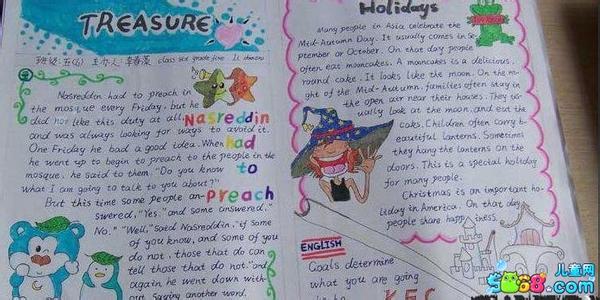 TREASURE
班级:五(4) 主办人:李春溪 class six grade five
Nasreddin had to preach in
the mosque every Friday, but he
did not like this duty at all.
and was always looking for ways to avoid it.
One Friday he had a good idea. When he
went up to begin to preach to the people in the
mosque, he said to them, "Do you know
what I am going to talk to you about?"
But this time some people an-
swered, "Yes," and some answered,
No." "Well," said Nasreddin, "if some
of you know, and some of you
do not, those that do can
tell those that do not." and
again he went down with-
out saying another word.
Nasreddin
had
to
preach
Holidays
Many people in Asia celebrate the
Mid-Autumn Day. It usually comes in Se
ptember or October. On that day people
often eat mooncakes. A mooncakes is a delicious,
round cake. It looks like the moon. On the ni
ght of the Mid-Autumn, families often stay in
the open air near their houses. They us
ually look at the moon, and eat the
cakes. Children often carry b
eautiful lanterns. Sometimes
they hang the lanterns on the
doors. This is a special holiday
for many people.
Christmas is an important ho
liday in America. On that day
people share happiness.
ENGLISH
Goals determine
what you are going
to be
KFC
儿童网